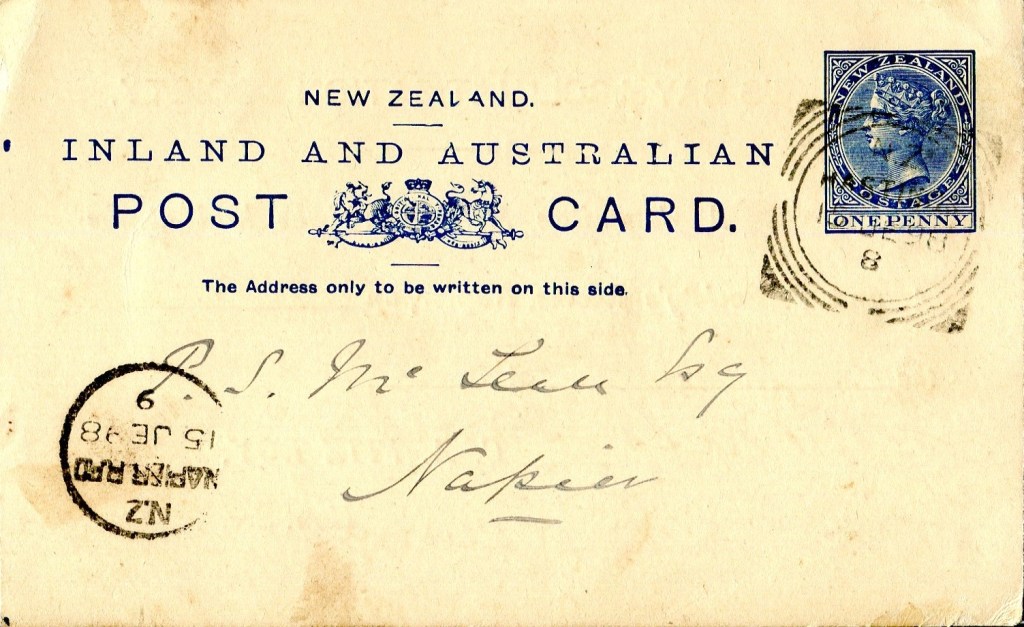 NEW ZEALAND.
INLAND AND AUSTRALIAN
POST CARD.
The Address only to be written on this side.
NEW ZEALAND
POSTAGE
ONE PENNY
8
P. S. McLean Esq
Napier
9
15 JE 98
NAPIER R.P.O
N.Z